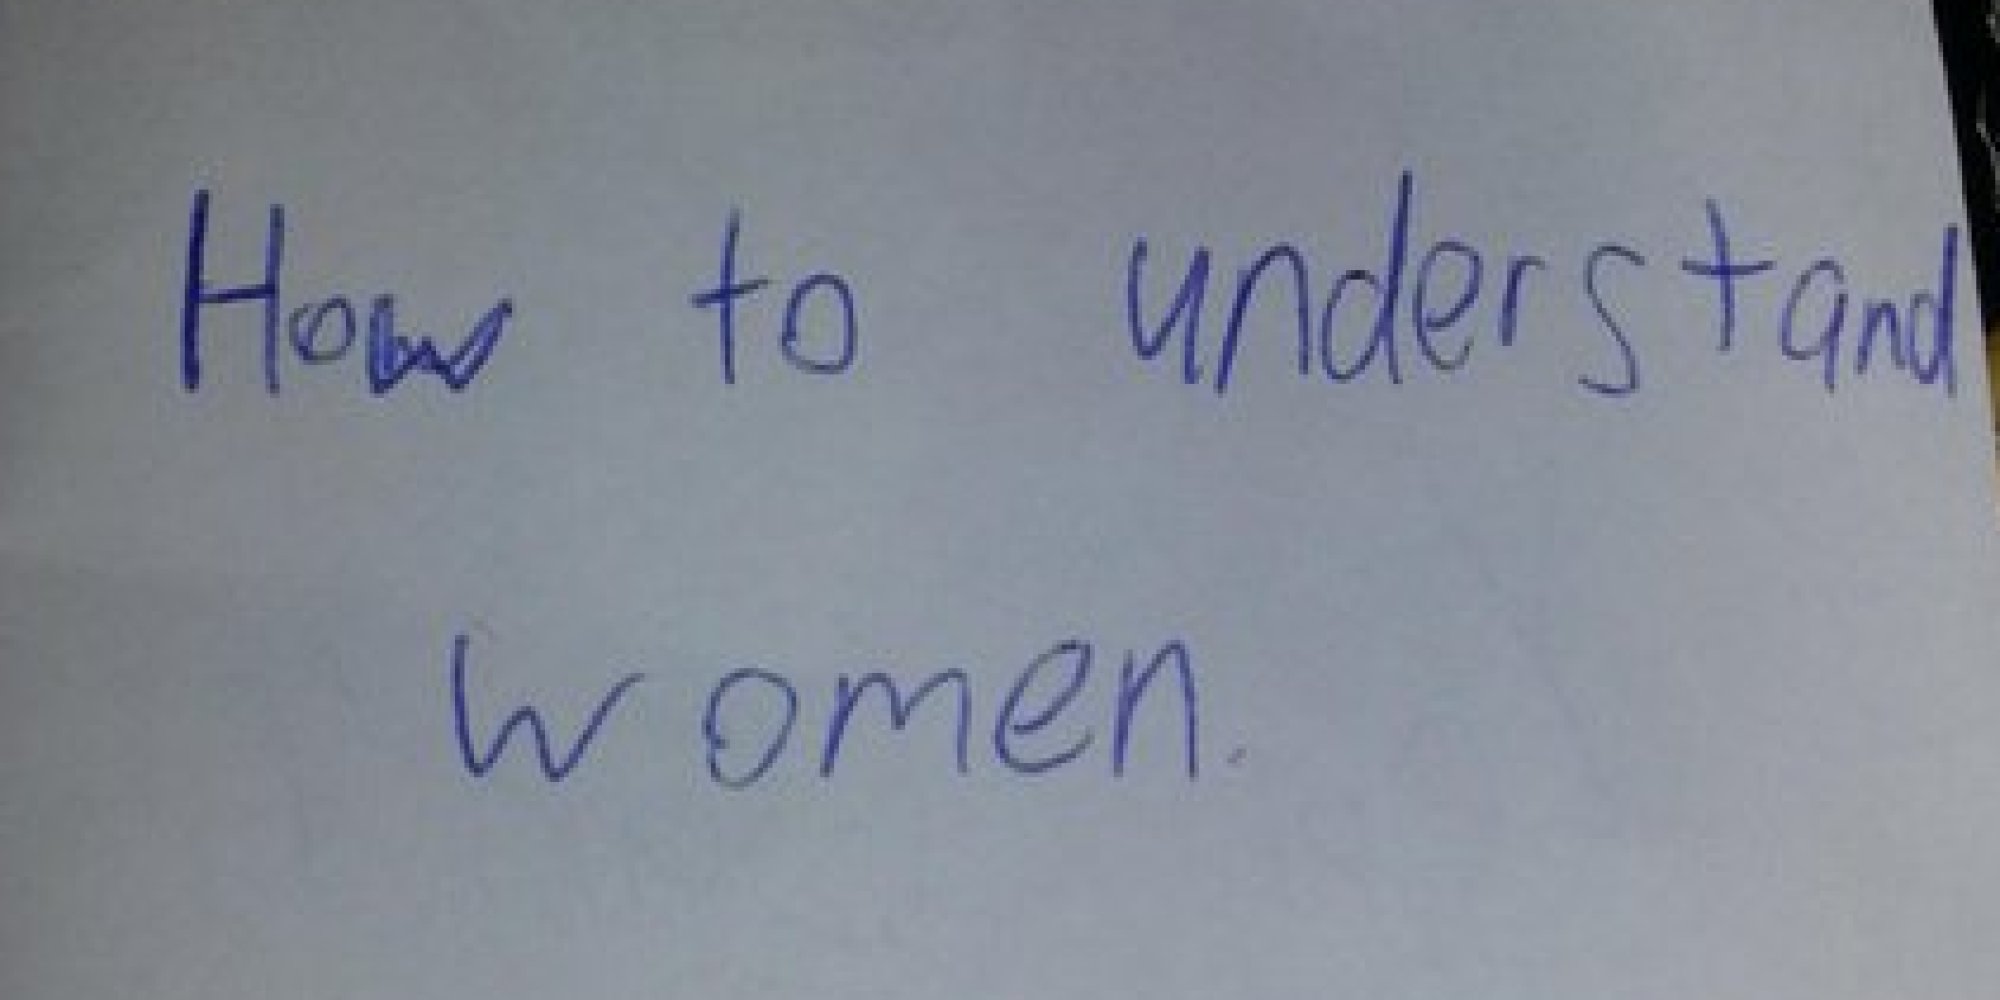 How to understand
women.